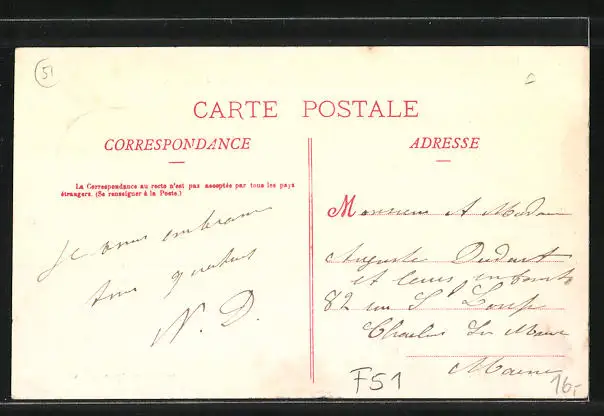 51
CARTE POSTALE
CORRESPONDANCE
ADRESSE
La Correspondance au recto n'est pas acceptée par tous les pays
étrangers. (Se renseigner à la Poste.)
Je vous embrasse
tous
N. D.
Monsieur et Madame
Auguste Dudart
et leurs enfants
82 rue St Loup
Chalons Sr Marne
Marne
F51
16,-